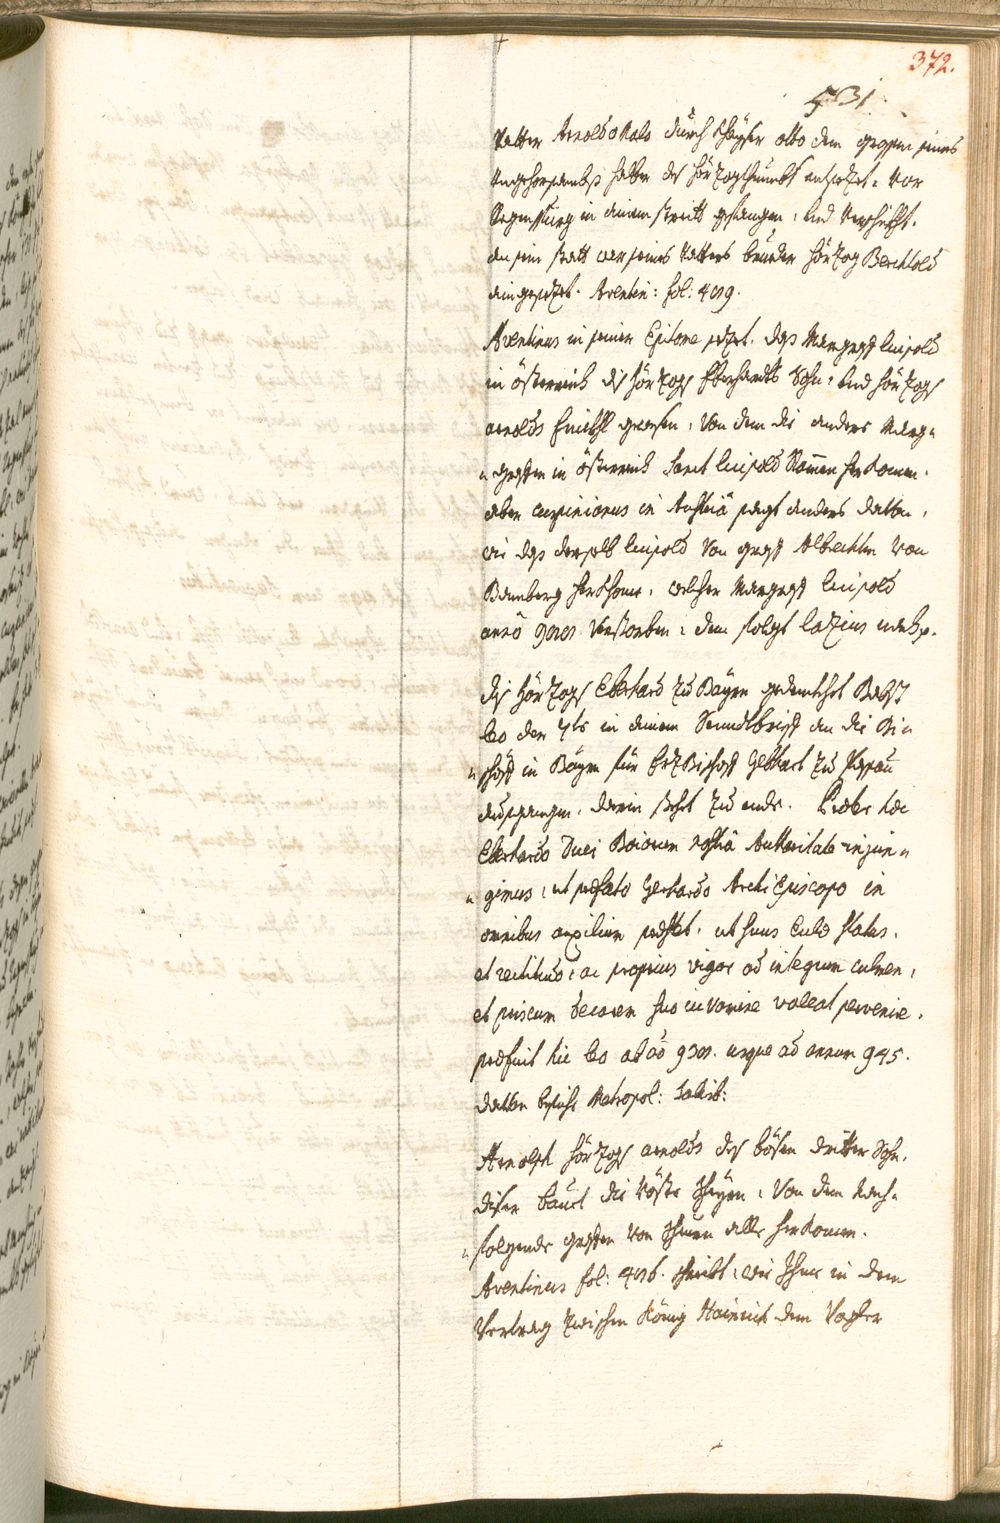 372.
531
Vatter Arnoldo Malo durch Khayser otto dem grossen seines
Ungehorsambs halber des Hörzogthumbs entsezt. Vor
Regenspurg in ainem streitt gefangen, und
an sein statt war seines Vatters brueder Hörzog Berchtold
eingesezt. Aventin: fol: 409.
Aventinus in seiner Epitome sezet. das Marggraf Luipold
in Österreich diß Hörzogs Eberhardts Sohn, und Hörzogs
arnolds Enickhl gewesen, Von dem die andere Marg-
graffen in Österreich Sanct Luipolds Stammen herkomen.
aber Cuspinianus in Austria sagt anders darvon,
wie das derselb Luipold Von graf Albrechten Von
Bamberg herkhome, welcher Marggraf Luipold
anno verstorben, dem folgt Lazius nach.
diß Hörzogs Eberhard zu Bayrn gedenkhet Babst
Leo der 7te in ainem Sendtbrief an die Bi-
schöff in Bayrn für ErzBischoff Gebhart zu Passau
ausgangen, darin steht zu ende.
Eberhardo Duci Boiorum nostra Authoritate injun-
gimus, ut praefato Gerhardo Archi Episcopo in
omnibus auxilium praestet, ut suus Status.
et rectitudo, ac proprius vigor ad integrum culmen,
et priscum decorem suo iuvamine valeat pervenire.
praefuit hic Leo ab usque ad annum 945.
darvon besiehe Metropol: Salisb:
Arnolph Hörzogs arnolds des bösen dritter Sohn.
diser baut die Vöste Scheyrn, Von dem nach-
folgende grafen Von Scheurn alle herkomen.
Aventinus fol: 406. schreibt, wie Ihme in dem
Vertrag zwischen König Hainrich dem Vogler